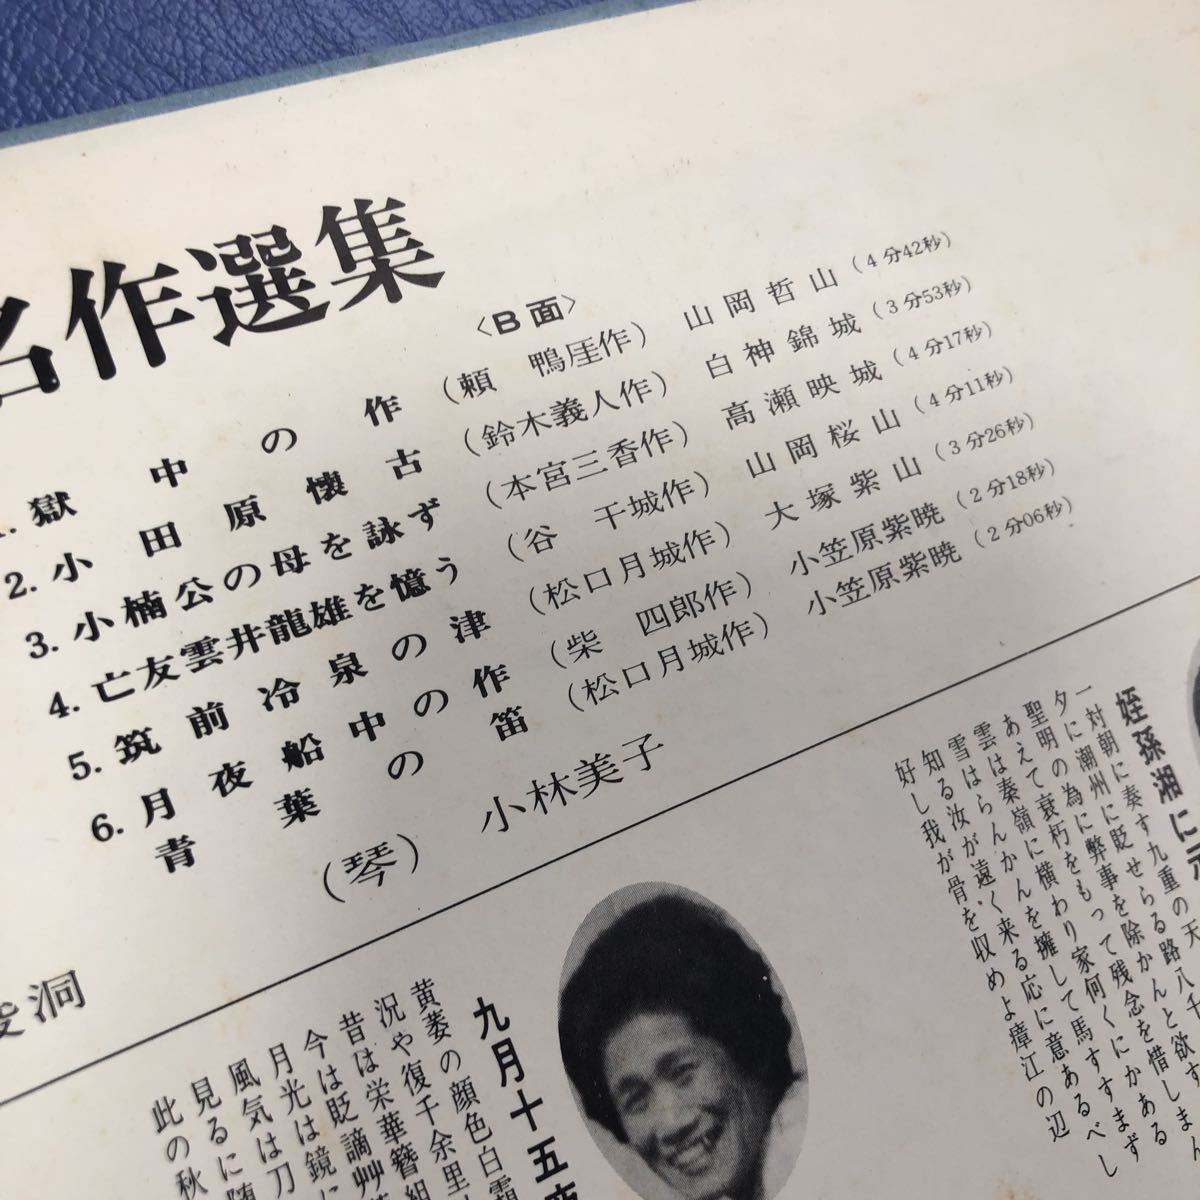 名作選集
〈B面〉
1. 獄中の作 (頼 鴨厓作) 山岡哲山 (4分42秒)
2. 小田原懐古 (鈴木義人作) 白神錦城 (3分53秒)
3. 小楠公の母を詠ず (本宮三香作) 高瀬映城 (4分17秒)
4. 亡友雲井龍雄を憶う (谷 干城作) 山岡桜山 (4分11秒)
5. 筑前冷泉の津 (松口月城作) 大塚紫山 (3分26秒)
6. 月夜船中の作 (柴 四郎作) 小笠原紫暁 (2分18秒)
青葉の笛 (松口月城作) 小笠原紫暁 (2分06秒)
(琴) 小林美子
姪孫湘に示
一対朝に奏す九重の天
夕に潮州に貶せらる路八千
聖明の為に弊事を除かんと欲す
あえて衰朽をもって残念を惜しまん
雲は秦嶺に横わり家何くにかある
雪はらんかんを擁して馬すすまず
知る汝が遠く来る応に意あるべし
好し我が骨を収めよ瘴江の辺
洞
九月十五夜
黄萎の顔色白霜
況や復千余里
昔は栄華簪組
今は貶謫艸
月光は鏡に
風気は刀
見るに随
此の秋